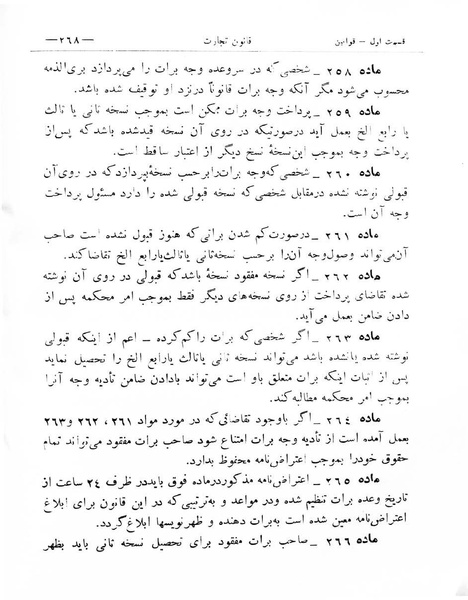 قسمت اول – قوانین
قانون تجارت
—۲۶۸—
ماده ۲۵۸ – شخصی که در سروعده وجه برات را می‌پردازد بری‌الذمه
محسوب می‌شود مگر آنکه وجه برات قانوناً درنزد او توقیف شده باشد.
ماده ۲۵۹ – پرداخت وجه برات ممکن است بموجب نسخه ثانی یا ثالث
یا رابع الخ بعمل آید درصورتیکه در روی آن نسخه قیدشده باشد که پس‌از
پرداخت وجه بموجب این‌نسخهٔ نسخ دیگر از اعتبار ساقط است.
ماده ۲۶۰ – شخصی که وجه برات‌را برحسب نسخهٔ بپردازد که در روی‌آن
قبولی نوشته نشده درمقابل شخصی که نسخه قبولی شده را دارد مسئول پرداخت
وجه آن است.
ماده ۲۶۱ – درصورت گم شدن براتی که هنوز قبول نشده است صاحب
آن می‌تواند وصول وجه آن‌را برحسب نسخه ثانی یاثالث یارابع الخ تقاضا کند.
ماده ۲۶۲ – اگر نسخه مفقود نسخهٔ باشد که قبولی در روی آن نوشته
شده تقاضای پرداخت از روی نسخه‌های دیگر فقط بموجب امر محکمه پس از
دادن ضامن بعمل می‌آید.
ماده ۲۶۳ – اگر شخصی که برات را گم کرده – اعم از اینکه قبولی
نوشته شده یانشده باشد می‌تواند نسخه ثانی یاثالث یارابع الخ را تحصیل نماید
پس از اثبات اینکه برات متعلق باو است می‌تواند بادادن ضامن تأدیه وجه آنرا
بموجب امر محکمه مطالبه کند.
ماده ۲۶۴ – اگر باوجود تقاضائی که در مورد مواد ۲۶۱، ۲۶۲ و ۲۶۳
بعمل آمده است از تأدیه وجه برات امتناع شود صاحب برات مفقود می‌تواند تمام
حقوق خودرا بموجب اعتراض‌نامه محفوظ بدارد.
ماده ۲۶۵ – اعتراض‌نامه مذکور درماده فوق باید در ظرف ۲۴ ساعت از
تاریخ وعده برات تنظیم شده ودر مواعد و به‌ترتیبی که در این قانون برای ابلاغ
اعتراض‌نامه معین شده است به‌برات دهنده و ظهرنویسها ابلاغ گردد.
ماده ۲۶۶ – صاحب برات مفقود برای تحصیل نسخه ثانی باید بظهر